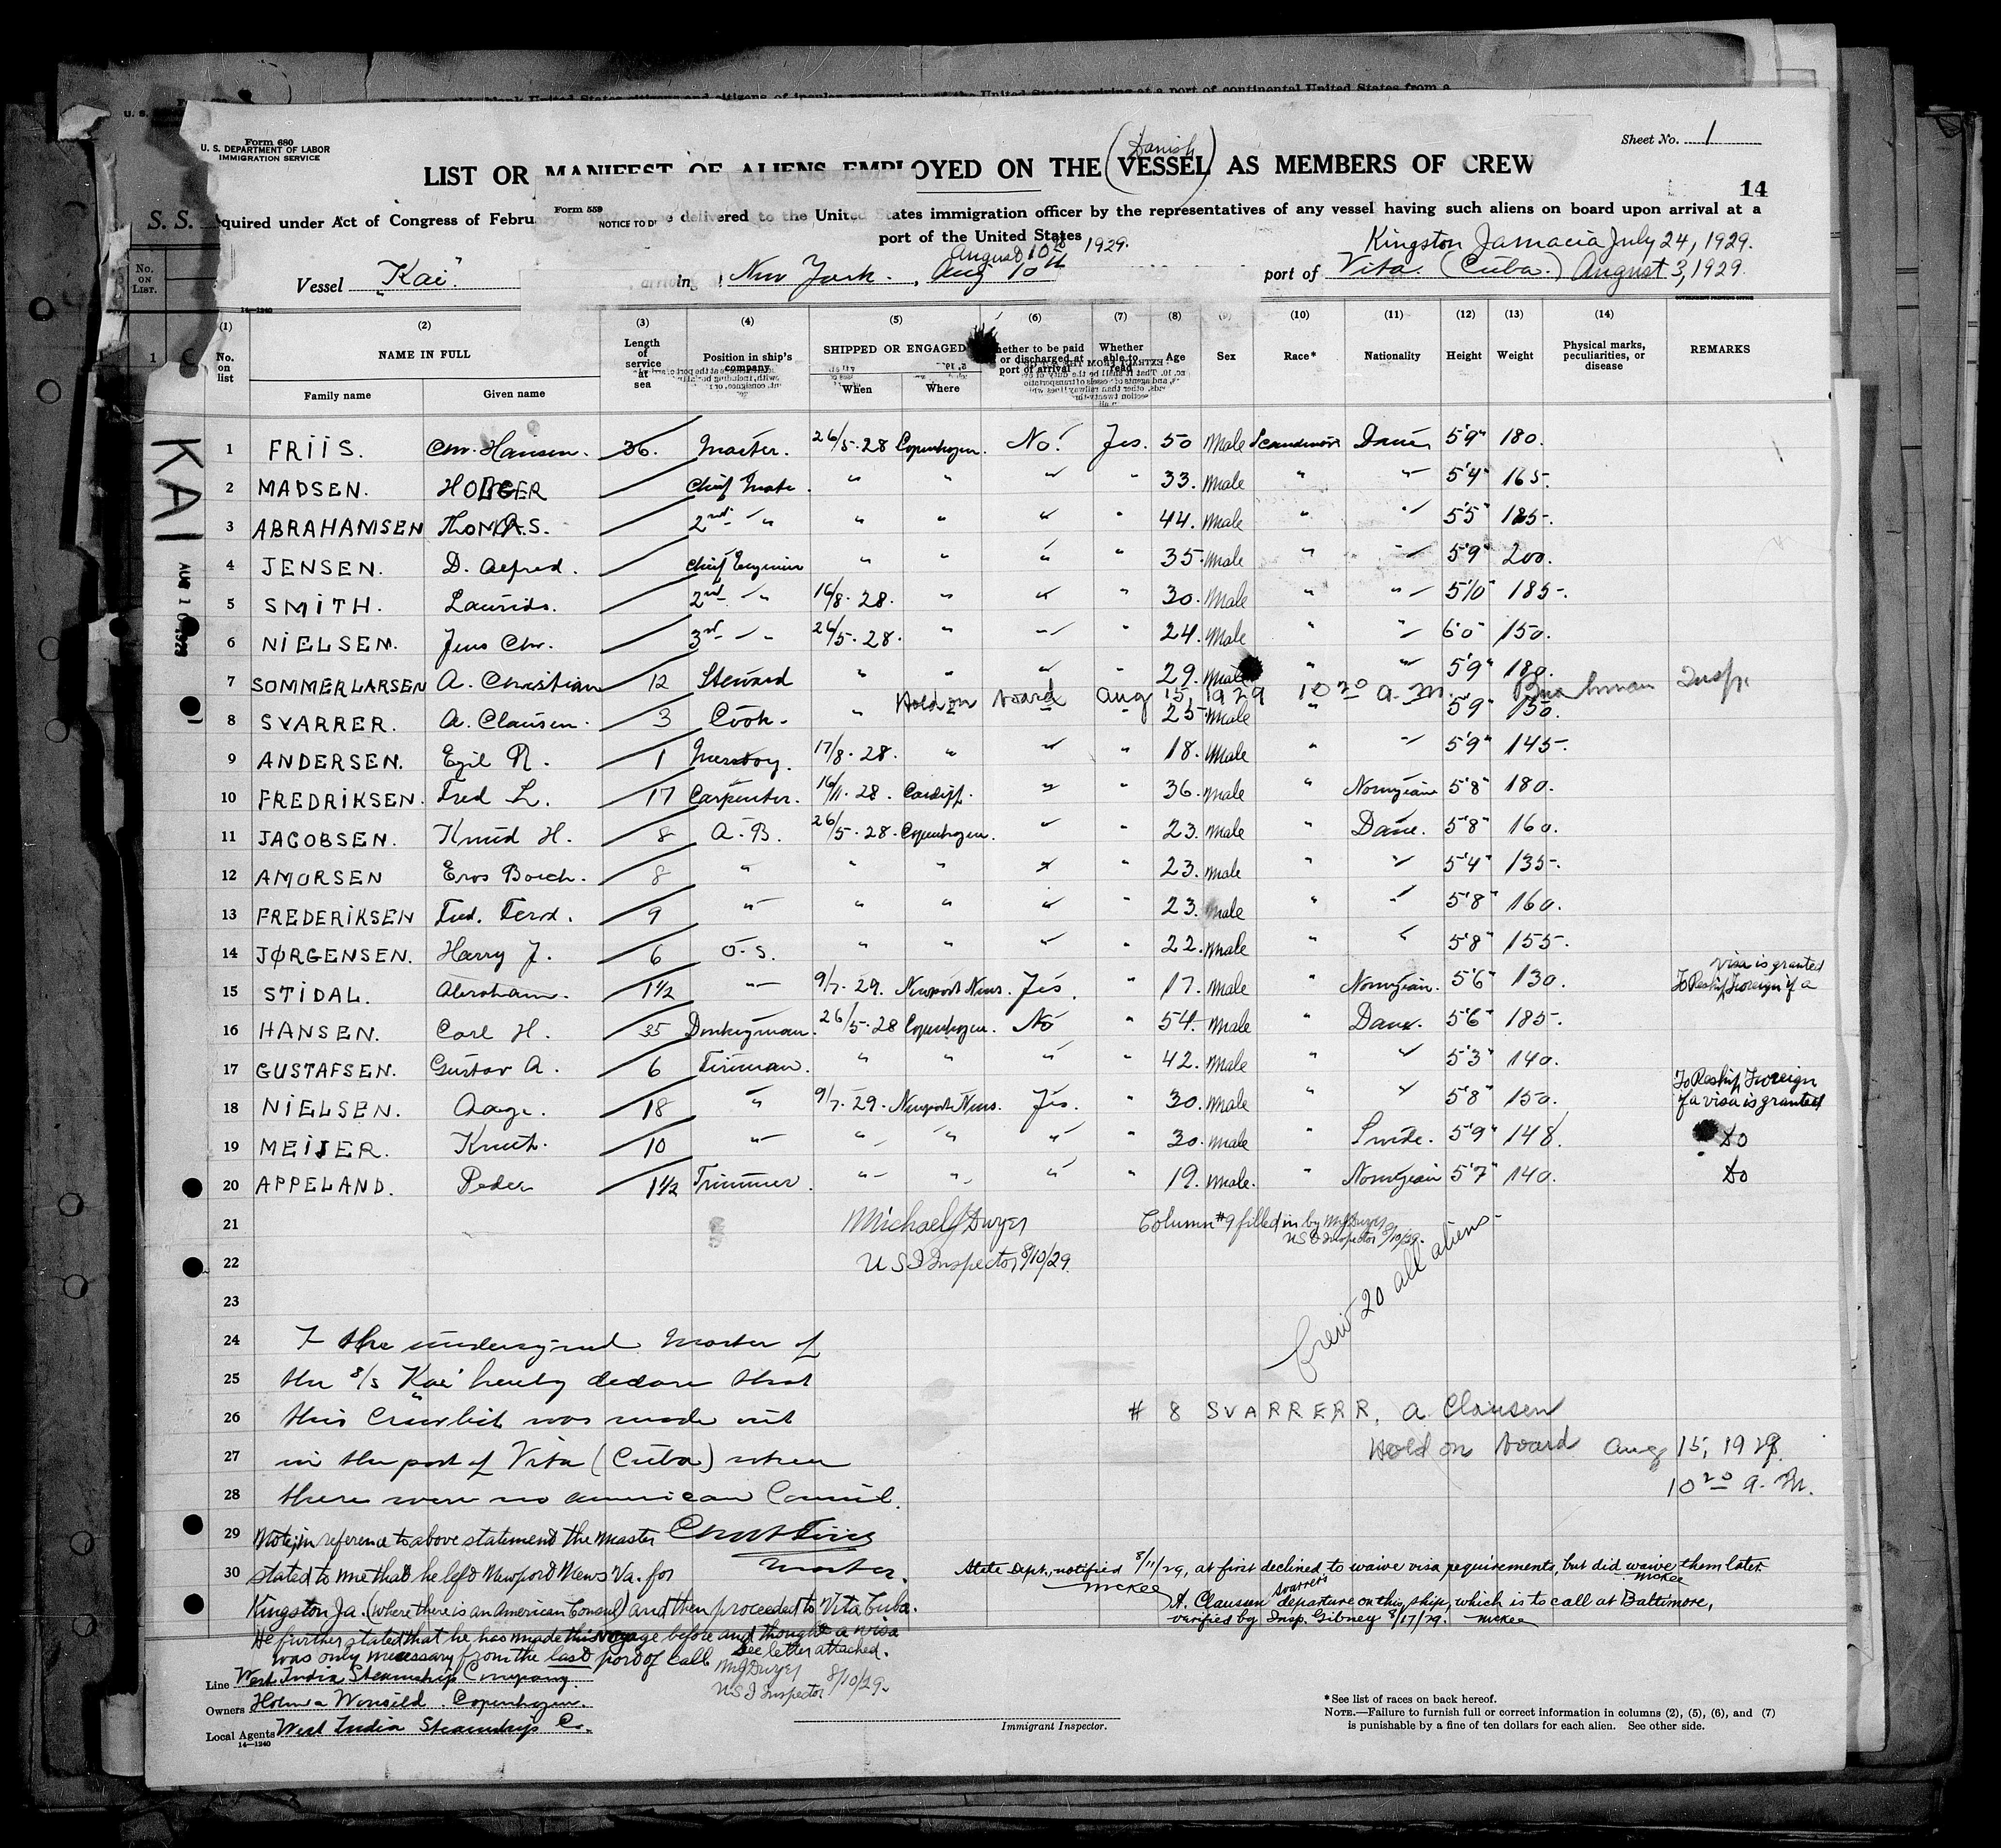 Form 680
U. S. DEPARTMENT OF LABOR
IMMIGRATION SERVICE
Sheet No. 1
(Danish)
LIST OR MANIFEST OF ALIENS EMPLOYED ON THE VESSEL AS MEMBERS OF CREW
14
S. S.
quired under Act of Congress of Februar
Form 559
NOTICE TO
e delivered to the United States immigration officer by the representatives of any vessel having such aliens on board upon arrival at a
port of the United States
August 10th 1929.
Kingston Jamacia July 24, 1929.
Vessel "Kai" arriving New York. , Aug 10th port of Vita (Cuba.) August 3, 1929.
14—1240
No. on List.
(1) (2) (3) (4) (5) (6) (7) (8) (9) (10) (11) (12) (13) (14)
No. on list NAME IN FULL Length of service at sea Position in ship's company SHIPPED OR ENGAGED Whether to be paid or discharged at port of arrival Whether able to read Age Sex Race* Nationality Height Weight Physical marks, peculiarities, or disease REMARKS
Family name Given name When Where
KAI
AUG 10 1929
1 FRIIS. Chr. Hansen. 36. Master. 26/5-28 Copenhagen. No. Yes. 50 Male Scandinav Dane 5'9" 180.
2 MADSEN. HOLGER Chief Mate. " " " " 33. Male " " 5'4" 165.
3 ABRAHAMSEN THOMAS. 2nd " " " " " 44. Male " " 5'5" 185.
4 JENSEN. D. Alfred. Chief Engineer " " " " 35. Male " " 5'9" 200.
5 SMITH. Laurids. 2nd " 16/8-28. " " " 30. Male " " 5'10" 185.
6 NIELSEN. Jens Chr. 3rd " 26/5-28. " " " 24. Male " " 6'0" 150.
7 SOMMERLARSEN A. Christian 12 Steward " " " " 29. Male " " 5'9" 180.
Held on board Aug 15, 1929 10 20 a.m. Insp.
8 SVARRER. A. Clausen. 3 Cook. " " " " 25. Male " " 5'9" 150.
9 ANDERSEN. Egil R. 1 Messboy. 17/8-28. " " " 18. Male " " 5'9" 145.
10 FREDRIKSEN. Fred L. 17 Carpenter. 16/11-28. Cardiff. " " 36. Male " Norwegian 5'8" 180.
11 JACOBSEN. Knud H. 8 A.B. 26/5-28. Copenhagen. " " 23. Male " Dane. 5'8" 160.
12 AMORSEN Eros Borch. 8 " " " " " 23. Male " " 5'4" 135.
13 FREDERIKSEN Fred. Ferd. 9 " " " " " 23. Male " " 5'8" 160.
14 JØRGENSEN. Harry J. 6 O.S. " " " " 22. Male " " 5'8" 155.
15 STIDAL. Abraham. 1½ " 9/7-29. Newport News. Yes. " 17. Male " Norwegian. 5'6" 130. To Reship Foreign if a visa is granted
16 HANSEN. Carl H. 35 Donkeyman. 26/5-28 Copenhagen. No " 54. Male " Dane. 5'6" 185.
17 GUSTAFSEN. Gustav A. 6 Fireman. " " " " 42. Male " " 5'3" 140.
18 NIELSEN. Aage. 18 " 9/7-29. Newport News. Yes. " 30. Male " " 5'8" 150. To Reship Foreign if a visa is granted
19 MEIJER. Knuth. 10 " " " " " 30. Male " Swede. 5'9" 148. Do
20 APPELAND. Peder 1½ Trimmer. " " " " 19. Male. " Norwegian 5'7" 140. Do
21 Michael J Dwyer Column #9 filled in by MJ Dwyer
US I Inspector 8/10/29.
22 U S I Inspector 8/10/29.
23
Crew 20 all aliens.
24 I the undersigned Master of
25 the s/s "Kai" hereby declare that
26 this Crewlist was made out
# 8 SVARRERR, A. Clausen
27 in the port of Vita (Cuba) where
Held on board Aug 15, 1929.
28 there were no american Consul.
10 20 a. m.
29 Note; in reference to above statement the Master
30 stated to me that he left Newport News Va. for Master.
State Dept. notified 8/11/29, at first declined to waive visa requirements, but did waive them later.
McKee McKee
Kingston Ja. (where there is an American Consul) and then proceeded to Vita Cuba.
A. Clausen Svarrer's departure on this ship, which is to call at Baltimore,
verified by Insp. Gibney 8/17/29. McKee
He further stated that he has made this voyage before and thought a visa
was only necessary from the last port of call. See letter attached.
MJ Dwyer
US I Inspector 8/10/29.
Line West India Steamship Company.
Owners Holm & Wonsild. Copenhagen.
Local Agents West India Steamship Co.
14—1240
Immigrant Inspector.
*See list of races on back hereof.
NOTE.—Failure to furnish full or correct information in columns (2), (5), (6), and (7)
is punishable by a fine of ten dollars for each alien. See other side.